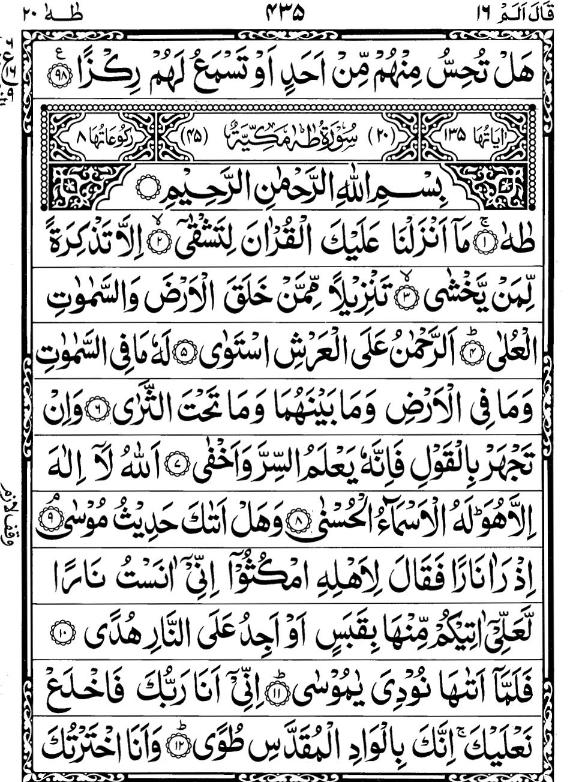 قَالَ اَلَمْ ١٦ ٤٣٥ طٰهٰ ٢٠
هَلْ تُحِسُّ مِنْهُمْ مِّنْ اَحَدٍ اَوْ تَسْمَعُ لَهُمْ رِكْزًا ٩٨
اٰيَاتُهَا ١٣٥ (٢٠) سُوْرَةُ طٰهٰ مَكِّيَّةٌ (٤٥) رُكُوْعَاتُهَا ٨
بِسْمِ اللّٰهِ الرَّحْمٰنِ الرَّحِيْمِ
طٰهٰ ١ مَاۤ اَنْزَلْنَا عَلَيْكَ الْقُرْاٰنَ لِتَشْقٰۤى ٢ اِلَّا تَذْكِرَةً
لِّمَنْ يَّخْشٰى ٣ تَنْزِيْلًا مِّمَّنْ خَلَقَ الْاَرْضَ وَالسَّمٰوٰتِ
الْعُلٰى ٤ اَلرَّحْمٰنُ عَلَى الْعَرْشِ اسْتَوٰى ٥ لَهٗ مَا فِى السَّمٰوٰتِ
وَمَا فِى الْاَرْضِ وَمَا بَيْنَهُمَا وَمَا تَحْتَ الثَّرٰى ٦ وَاِنْ
تَجْهَرْ بِالْقَوْلِ فَاِنَّهٗ يَعْلَمُ السِّرَّ وَاَخْفٰى ٧ اَللّٰهُ لَاۤ اِلٰهَ
اِلَّا هُوَ ؕ لَهُ الْاَسْمَآءُ الْحُسْنٰى ٨ وَهَلْ اَتٰىكَ حَدِيْثُ مُوْسٰى ٩
اِذْ رَاٰ نَارًا فَقَالَ لِاَهْلِهِ امْكُثُوْۤا اِنِّىْۤ اٰنَسْتُ نَارًا
لَّعَلِّىْۤ اٰتِيْكُمْ مِّنْهَا بِقَبَسٍ اَوْ اَجِدُ عَلَى النَّارِ هُدًى ١٠
فَلَمَّاۤ اَتٰىهَا نُوْدِىَ يٰمُوْسٰى ١١ اِنِّىْۤ اَنَا رَبُّكَ فَاخْلَعْ
نَعْلَيْكَ ۚ اِنَّكَ بِالْوَادِ الْمُقَدَّسِ طُوًى ١٢ وَاَنَا اخْتَرْتُكَ
وقف لازم